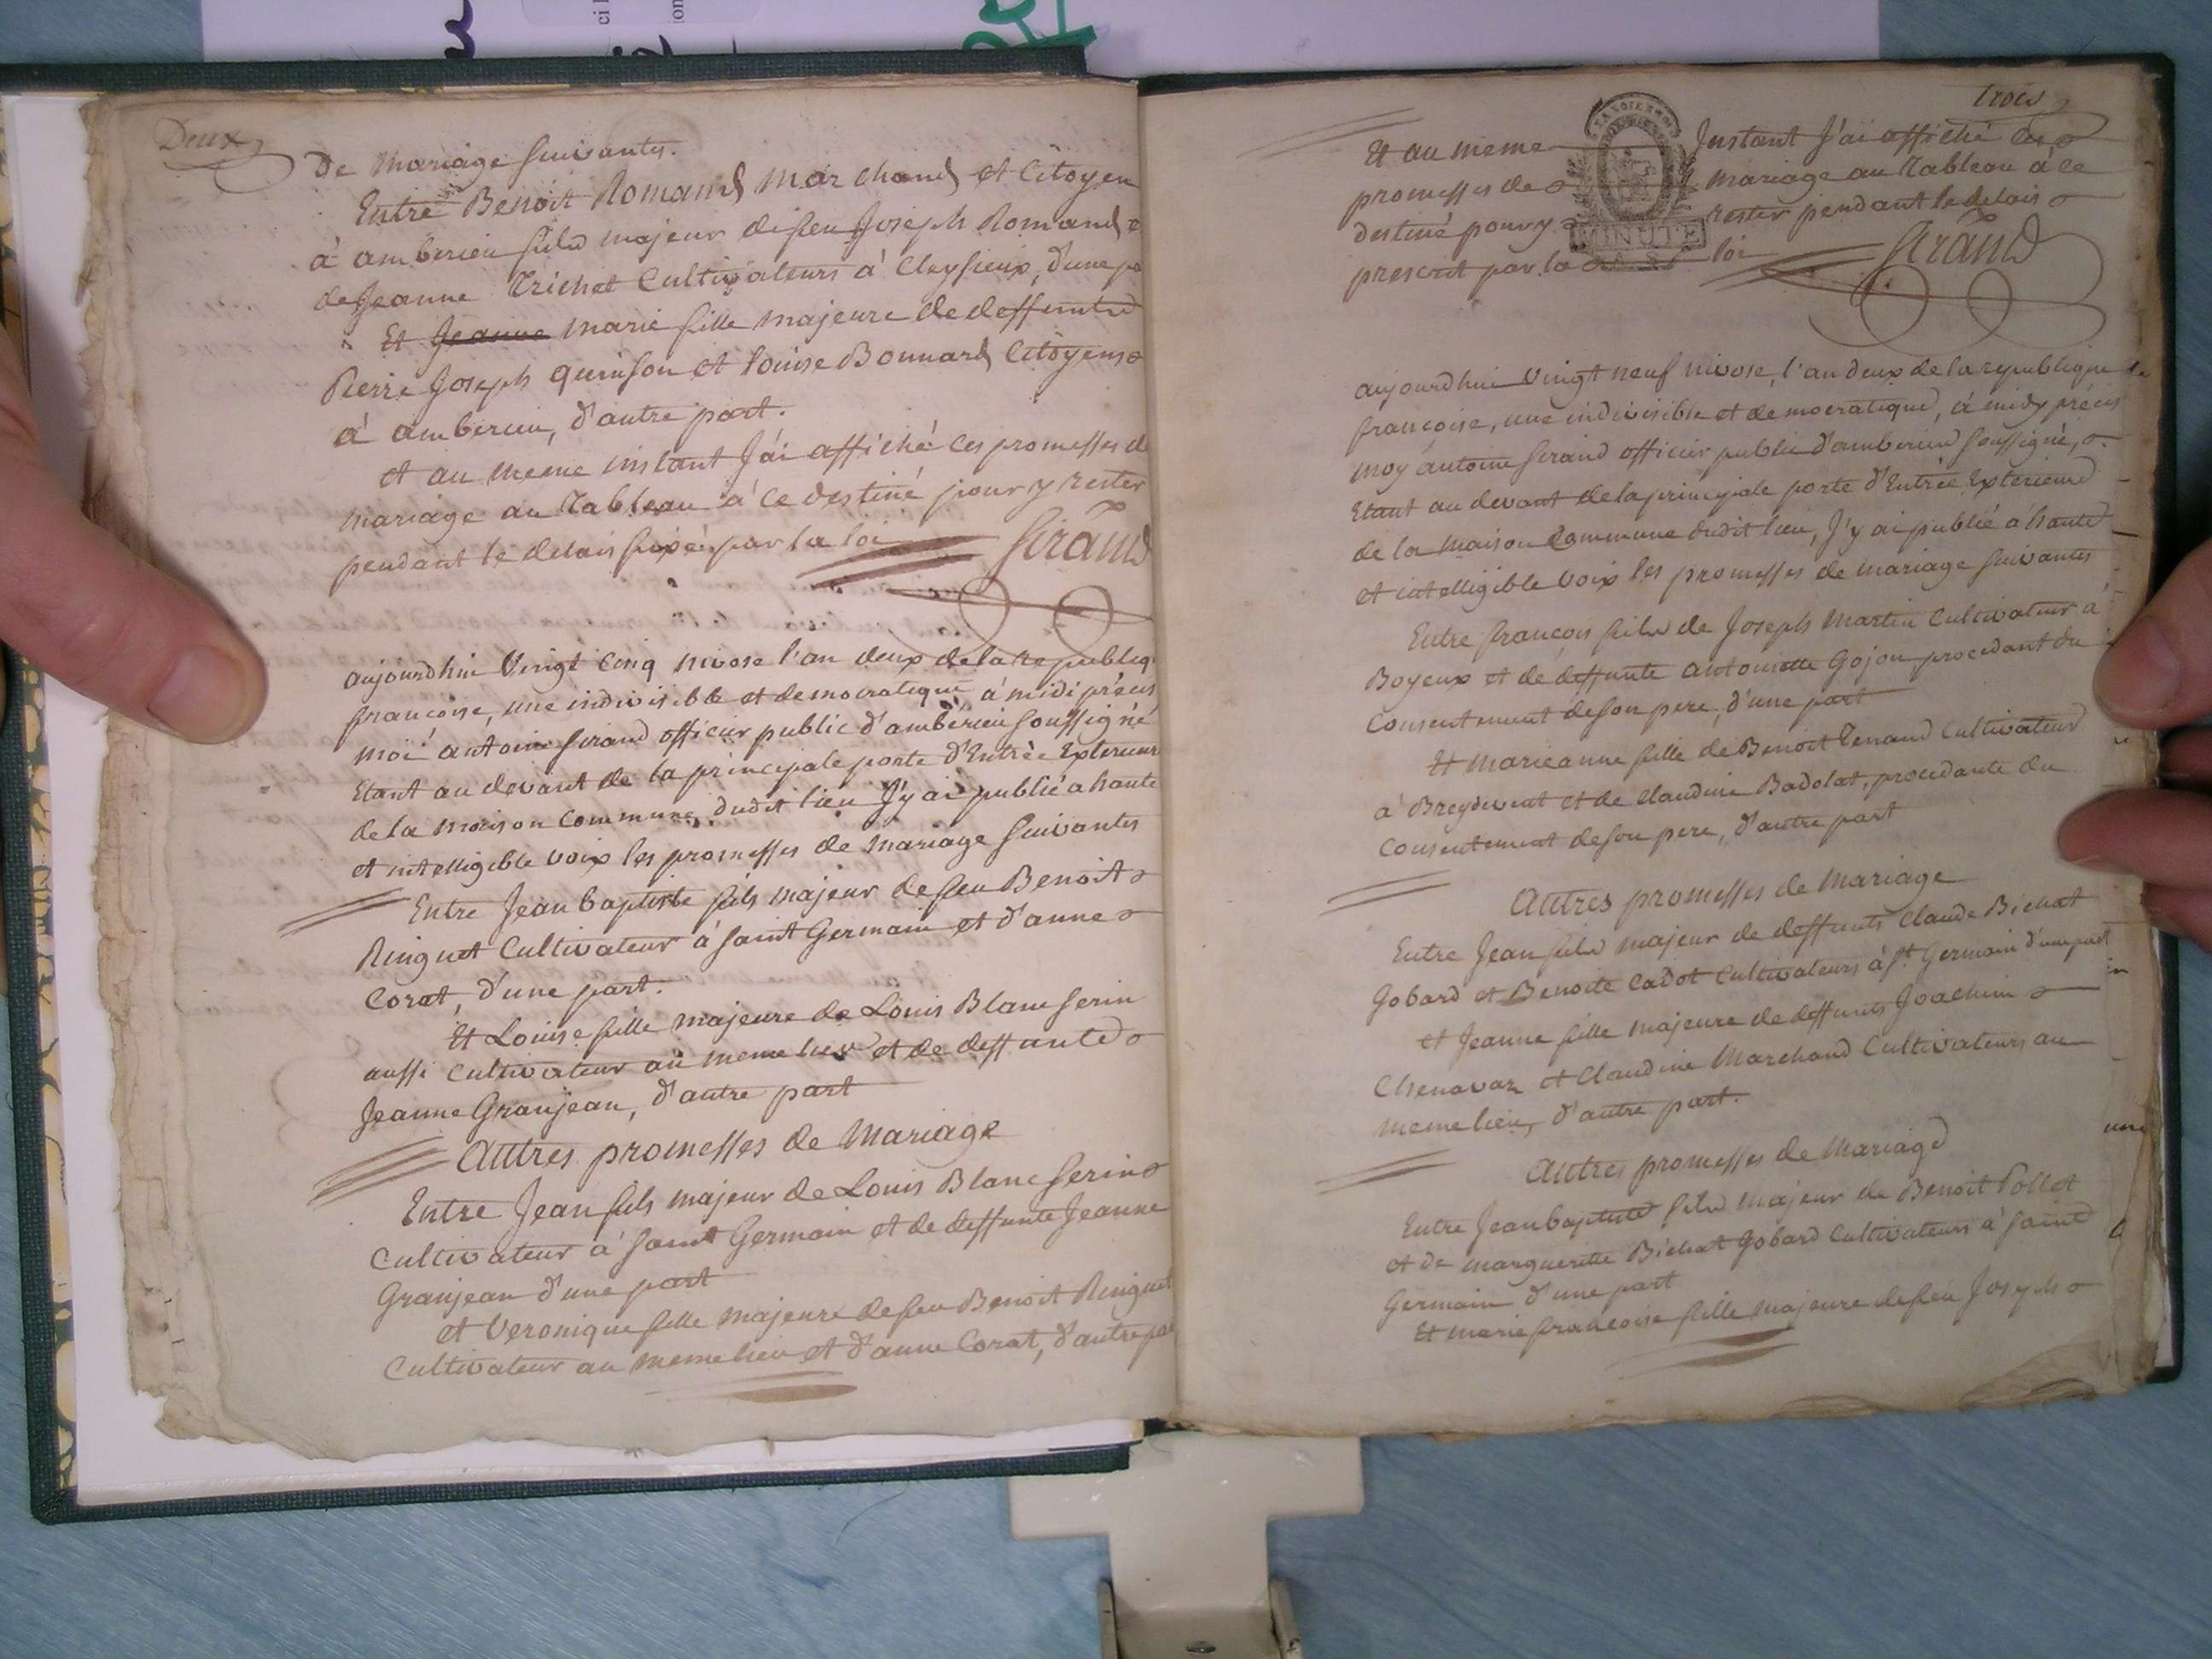 Deux
De mariage suivantes.
Entre Benoit Romand marchand et Citoyen
à amberieu fils majeur de feu Joseph Romand
de Jeanne Trichet Cultivateurs à Cleysieux, d'une pa
Et Jeanne marie fille majeure de deffunts
Pierre Joseph quinson et louise Bonnard Citoyens
à amberieu, d'autre part.
et au meme instant J'ai affiché les promesses de
mariage au Tableau à ce destiné pour y rester
pendant le delais fixé par la loi
Sirand
aujourdhui Vingt Cinq nivose l'an deux de la republiq.
françoise, une indivisible et democratique à midi précis
moi antoine Sirand officier public d'ambérieu soussigné
Etant au devant de la principale porte d'Entrèe Exterieure
de la maison Commune dudit lieu J'y ai publié a haute
et intelligible voix les promesses de mariage Suivantes
Entre Jean baptiste fils majeur de feu Benoit
Ringuet Cultivateur à saint Germain et d'anne
Corat, d'une part.
Et Louise fille majeure de Louis Blanc Serin
aussi Cultivateur au meme lieu et de deffunte
Jeanne Granjean, d'autre part
Autres promesses de Mariage
Entre Jean fils majeur de Louis Blanc Serin
Cultivateur à saint Germain et de deffunte Jeanne
Granjean d'une part
et Veronique fille majeure de feu Benoit Ringuet
Cultivateur au meme lieu et d'anne Corat, d'autre pa
Trois
Et au meme Instant J'ai affiché les
promesses de mariage au Tableau à ce
destiné pour y rester pendant le delais
prescrit par la loi
MINUTE
Sirand
aujourdhui Vingt neuf nivose, l'an deux de la republique
françoise, une indivisible et democratique, à midy précis
moy antoine Sirand officier public d'amberieu soussigné,
Etant au devant de la principale porte d'Entrèe Exterieure
de la maison Commune dudit lieu, J'y ai publié a haute
et intelligible Voix les promesses de mariage Suivantes
Entre françois fils de Joseph Martin Cultivateur à
Boyeux et de deffunte antoinette Gojon procedant du
Consentement de son pere, d'une part
Et marieanne fille de Benoit Tenand Cultivateur
à Breydevent et de Claudine Badolat, procedante du
Consentement de son pere, d'autre part
Autres promesses de Mariage
Entre Jean fils majeur de deffunts Claude Bichat
Gobard et Benoite Cadot Cultivateurs à St Germain d'une part
et Jeanne fille majeure de deffunts Joachim
Chenavaz et Claudine Marchand Cultivateurs au
meme lieu, d'autre part.
Autres promesses de Mariage
Entre Jean baptiste fils majeur de Benoit Pollet
et de margueritte Bichat Gobard Cultivateurs à saint
Germain d'une part
Et marie francoise fille majeure de feu Joseph